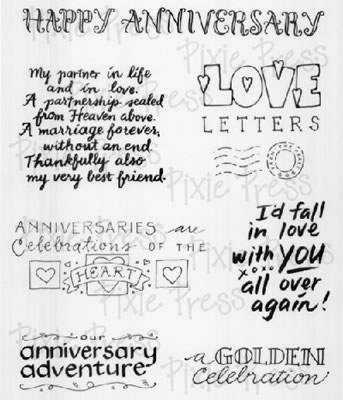 HAPPY ANNIVERSARY
My partner in life
and in love.
A partnership sealed
from Heaven above.
A marriage forever,
without an end.
Thankfully also
my very best friend.
LOVE
LETTERS
ANNIVERSARIES are
Celebrations OF THE
HEART
I'd fall
in love
with YOU
xoxo
all over
again!
our
anniversary
adventure
a GOLDEN
Celebration
Pixie Press
Pixie Press
Pixie Press
Pixie Press
Pixie Press
Pixie Press